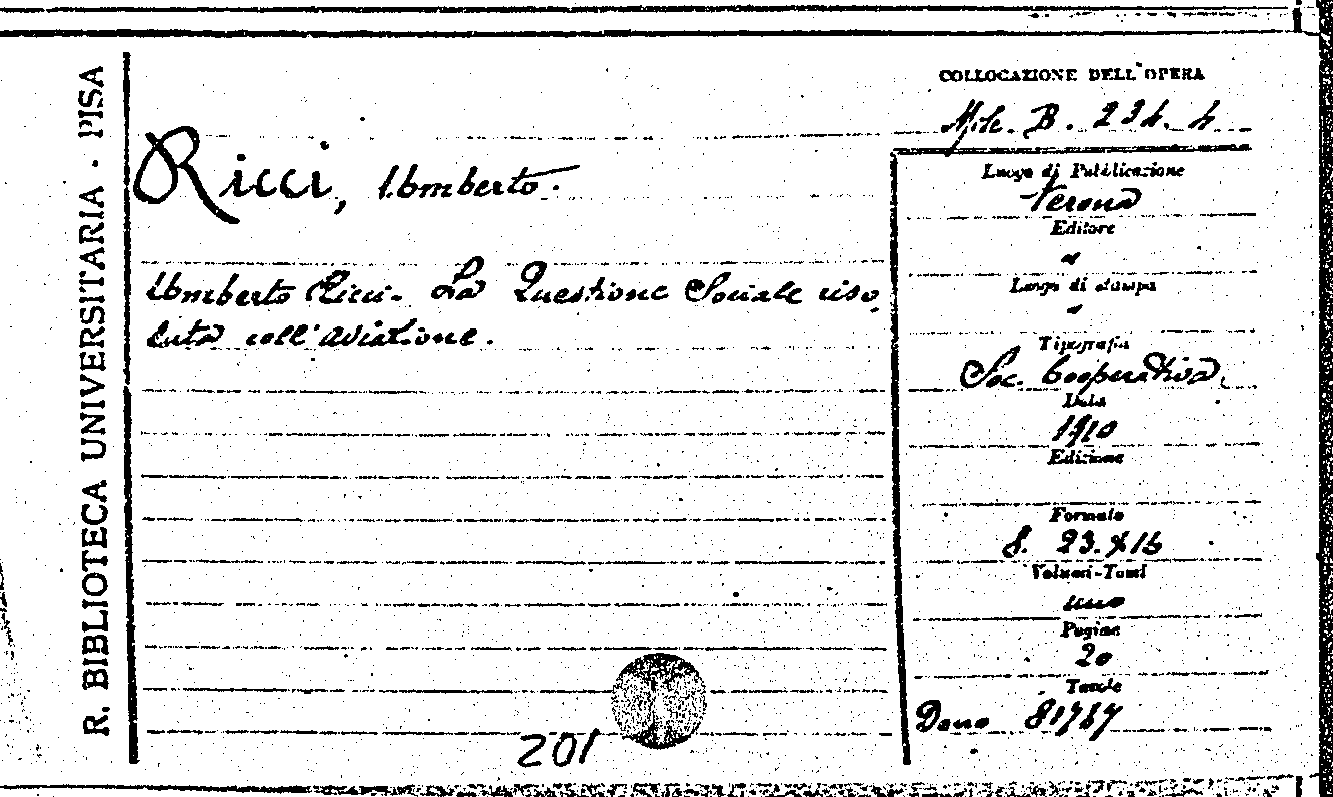 R. BIBLIOTECA UNIVERSITARIA · PISA
COLLOCAZIONE DELL'OPERA
B. 234. 4
Ricci, Umberto.
Umberto Ricci - La Questione Sociale riso
luta coll'aviazione.
Luogo di Pubblicazione
Verona
Editore
"
Luogo di stampa
"
Tipografia
Soc. Cooperativa.
Data
1910
Edizione
Formato
8. 23 × 16
Volumi-Tomi
uno
Pagine
20
Tavole
Dono 81767
201